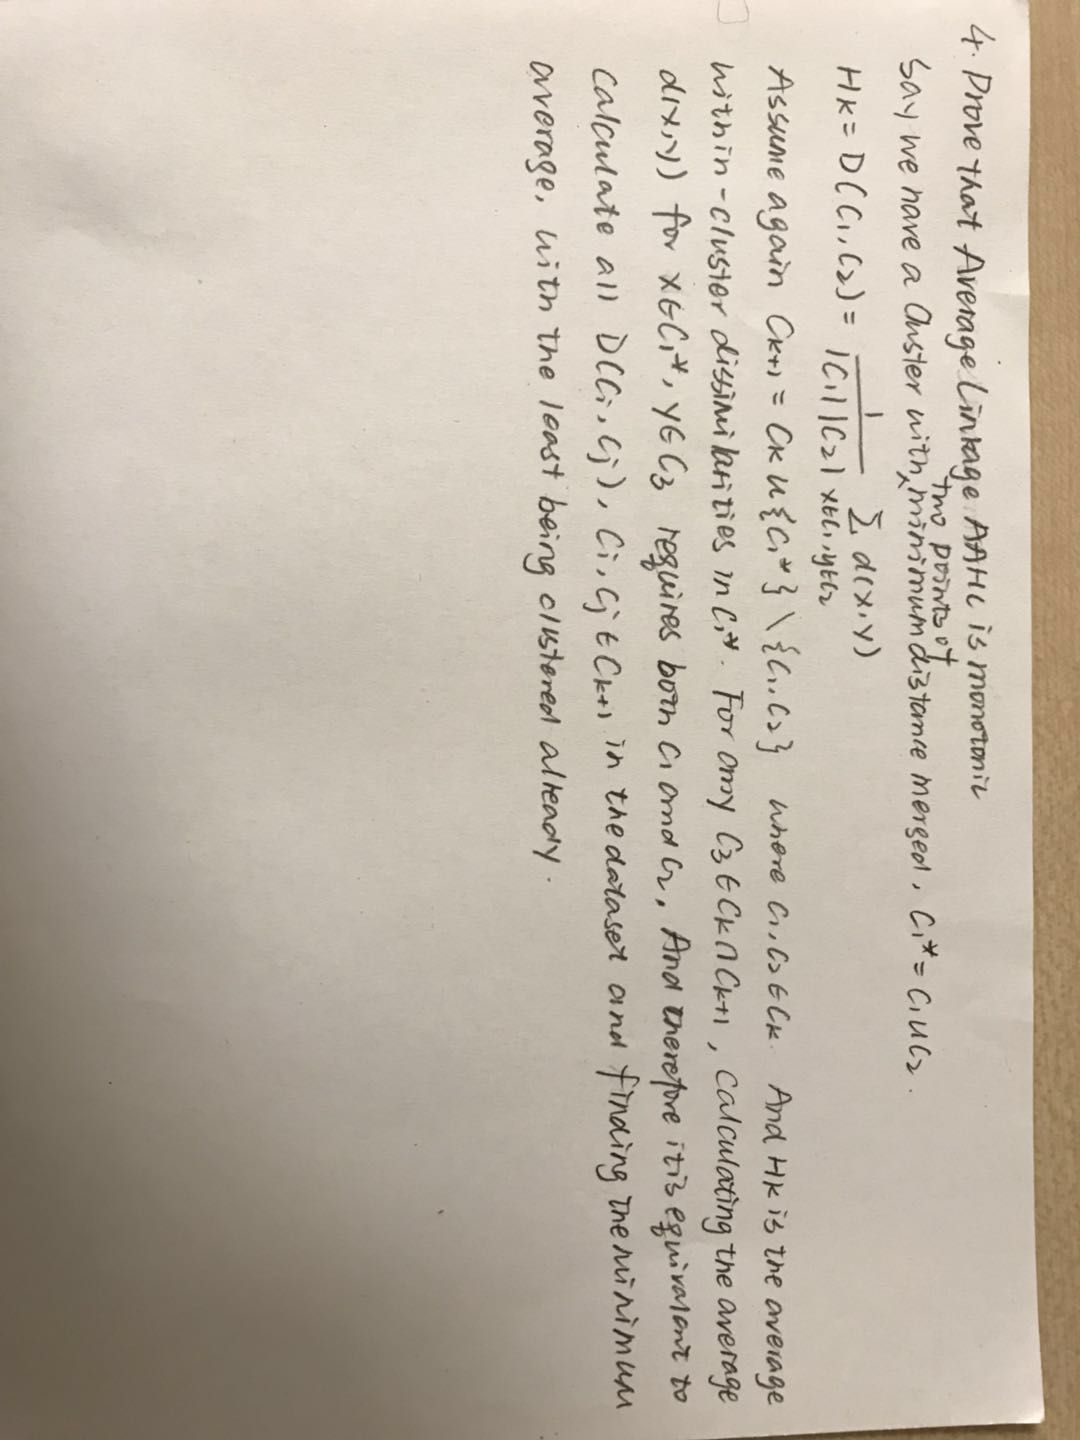 4. Prove that Average Linkage AAHC is monotonic
Say we have a Cluster with two points of minimum distance merged, C₁* = C₁ ∪ C₂.
Hk = D(C₁, C₂) = 1/|C₁||C₂| Σ x∈C₁, y∈C₂ d(x,y)
Assume again Ck+1 = Ck ∪ {C₁*} \ {C₁, C₂} where C₁, C₂ ∈ Ck. And Hk is the average
within-cluster dissimilarities in C₁*. For any C₃ ∈ Ck ∩ Ck+1, calculating the average
d(x,y) for x∈C₁*, y∈C₃ requires both C₁ and C₂, And therefore it is equivalent to
calculate all D(Ci, Cj), Ci, Cj ∈ Ck+1 in the dataset and finding the minimum
average, with the least being clustered already.